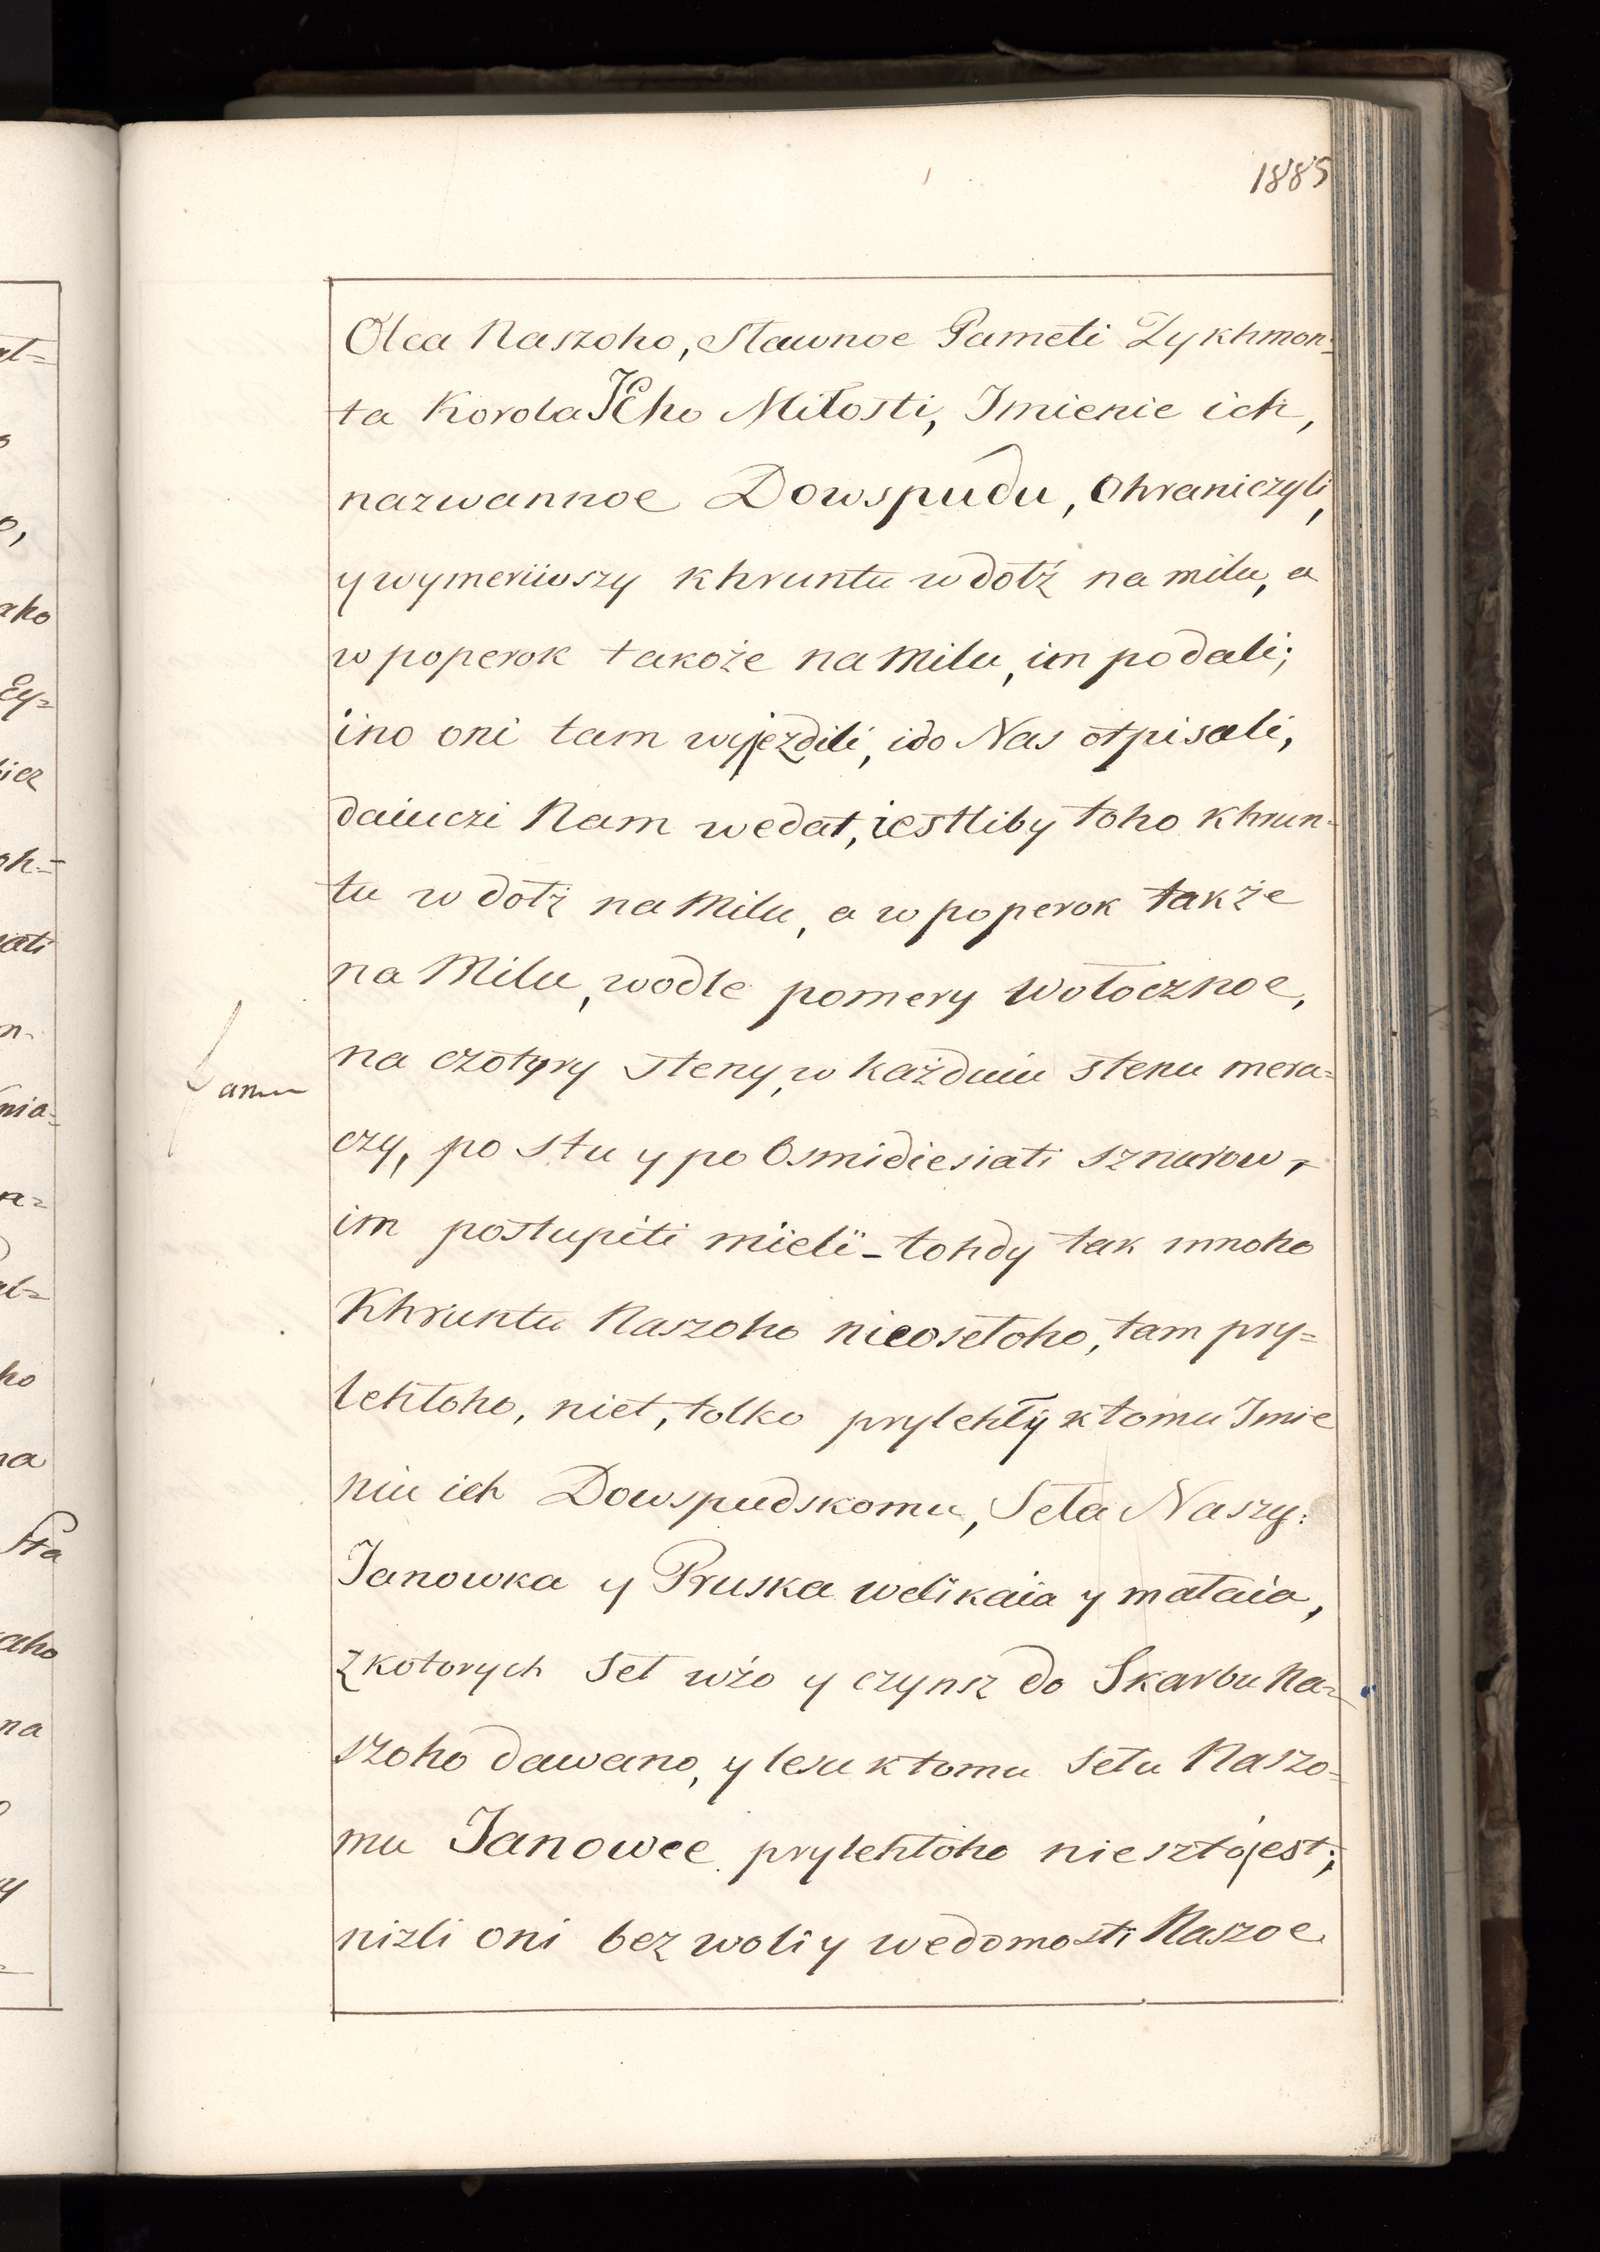 1885
Otca Naszoho, Sławnoe Pameti Zykhmon=
ta Korola JEho Miłosti, Imienie ich,
nazwannoe Dowspudu, Ohraniczyli,
y wymeriiwszy khruntu w dołź na milu, a
w poperok takoże na Milu, im podali;
ino oni tam wyjezdili, i do Nas otpisali,
daiuczi Nam wedat, iestliby toho khrun=
tu w dołż na Milu, a w poperok także
na Milu, wodle pomery wołocznoe,
na czotyry steny, w każduiu stenu mera=
czy, po stu y po Osmidiesiati sznurow,
im postupiti mieli - tohdy tak mnoho
Khruntu Naszoho nieosełoho, tam pry=
lehłoho, niet, tolko prylehły k tomu Imie
niu ich Dowspudskomu, Seła Naszy:
Janowka y Pruska welikaia y małaia,
z kotorych Seł wżo y czynsz do Skarbu Na=
szoho dawano, y lesu k tomu Sełu Naszo=
mu Janowce prylehłoho nieszto jest;
nizli oni bez woli y wedomosti Naszoe
at=
o,
ako
Ey=
icz
oh=
ati
n.
nia=
n=
ho
na
Sta
aho
na